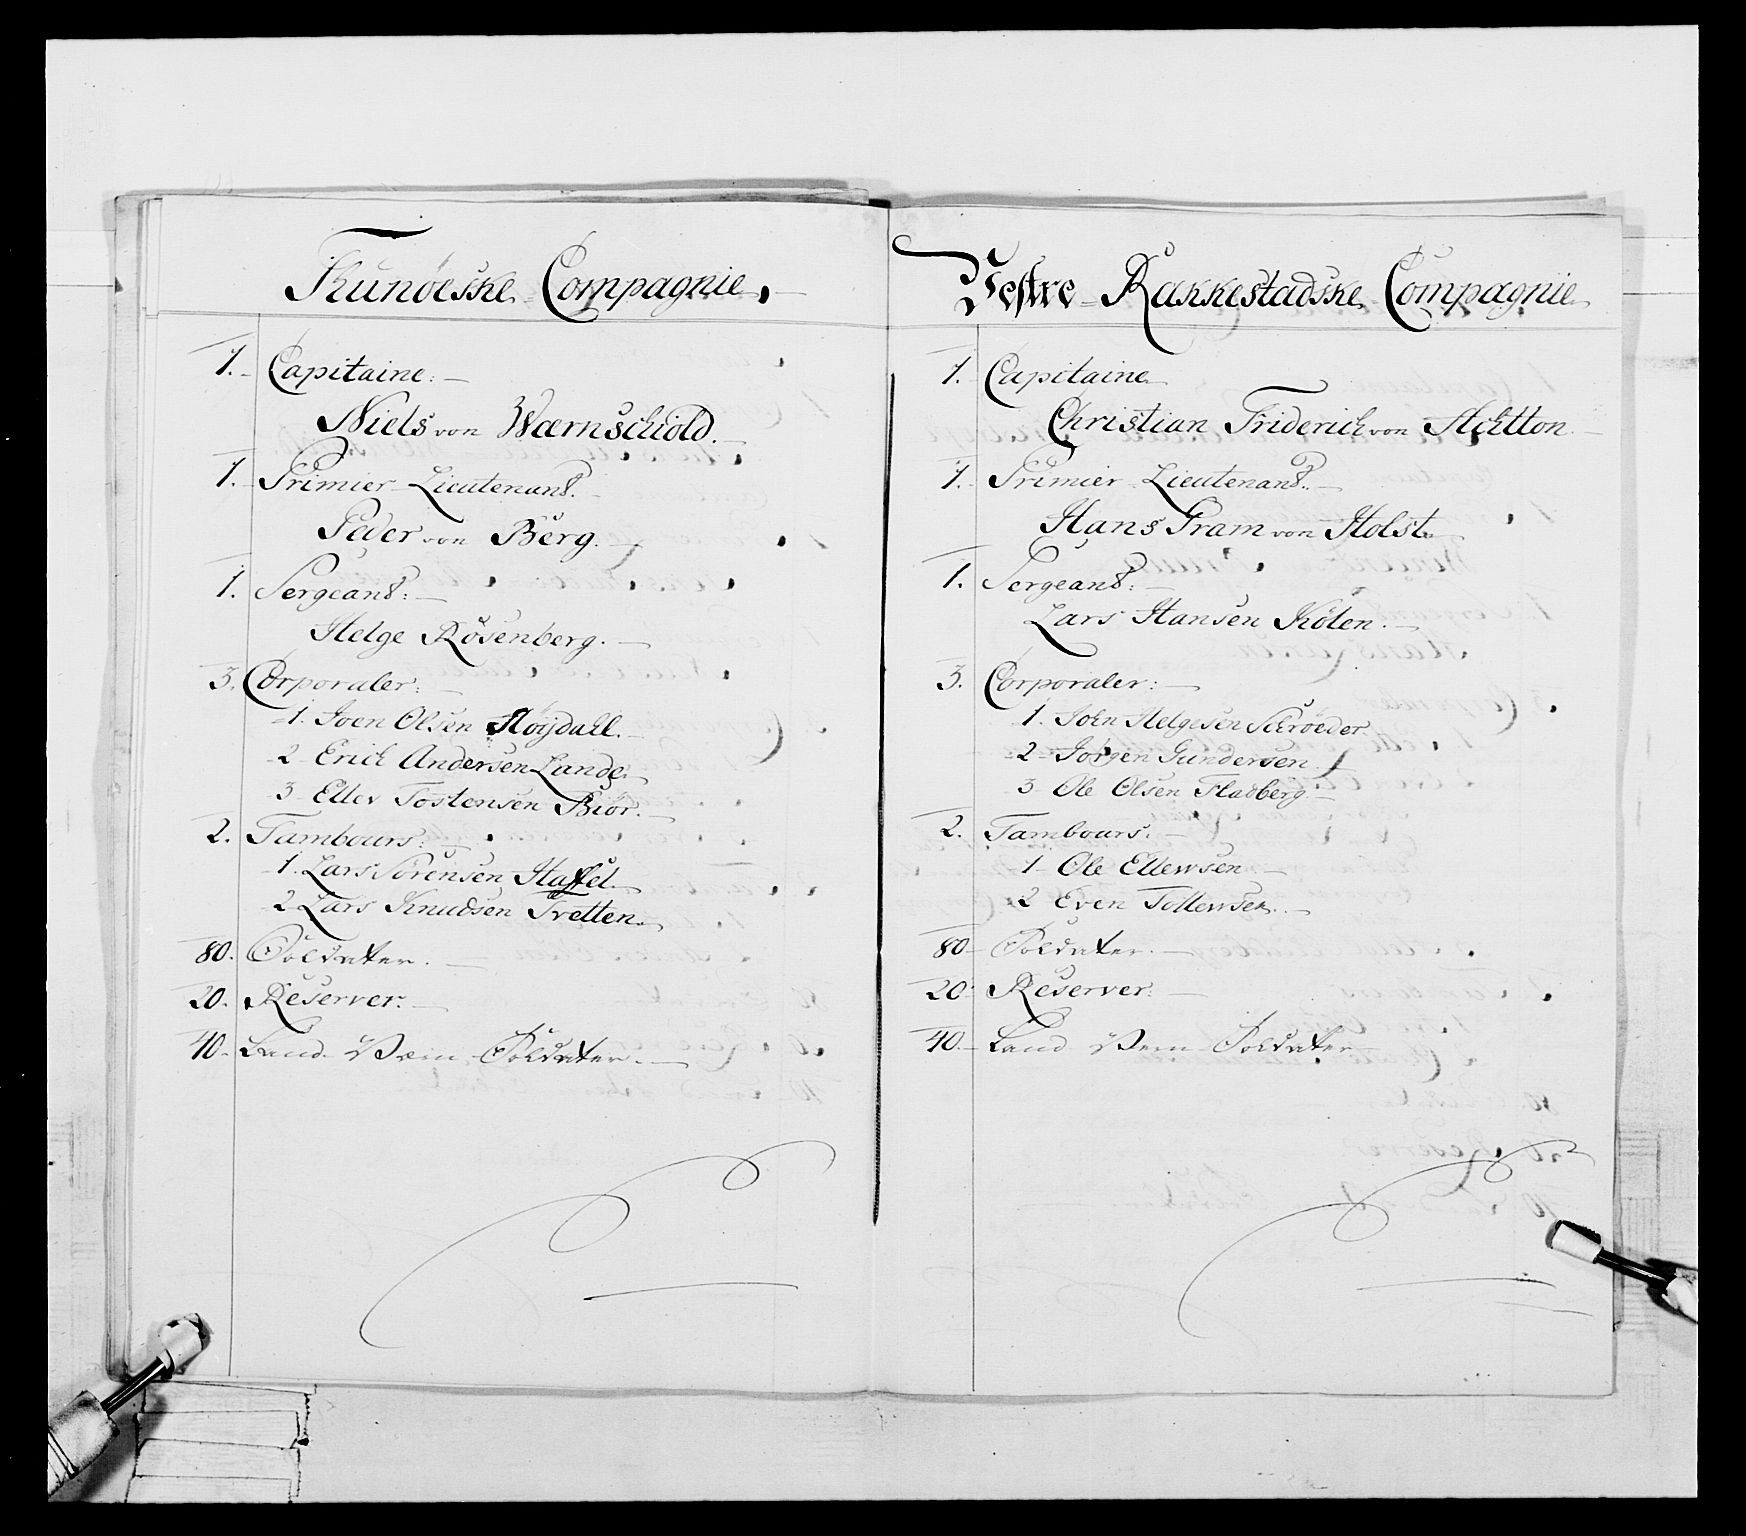 Thunöeske Compagnie.
1. Capitaine.
Niels von Wærnschiold.
1. Primier Lieutenant.
Peder von Berg.
1. Sergeant:
Helge Rosenberg.
3. Corporaler:
1. Joen Olsen Høÿdahl.
2 Erich Andersen Lande
3 Ellev Tostensen Biör.
2. Tambours:
1. Lars Sörensen Haffel
2 Lars Knudsen Tvetten.
80. Soldater.
20. Reserver.
40. Land Værn Soldater.
Vestre Rakkestadske Compagnie
1. Capitaine
Christian Friderich von
1. Primier Lieutenant.
Hans Gram von Holst.
1. Sergeant:
Lars Hansen Kölen.
3. Corporaler:
1. John Helgesen Schröeder
2 Jörgen Gundersen
3 Ole Olsen Fladberg
2. Tambours.
1 Ole Ellewsen
2 Even Tollewsen.
80 Soldater.
20 Reserver.
40. Land Værn Soldater